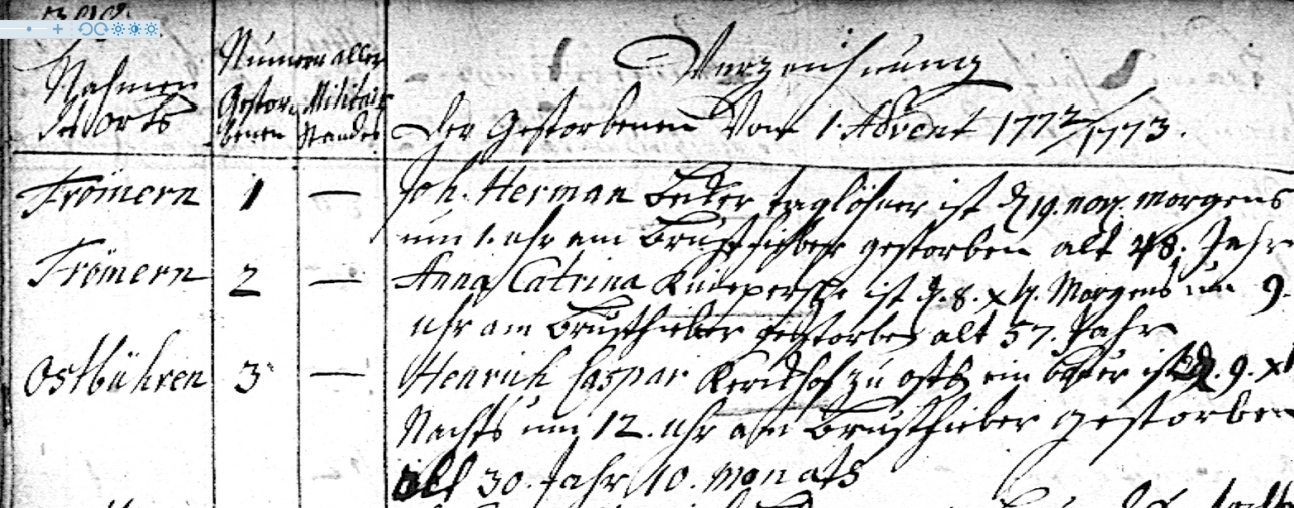 Nahmen
des orts
Numern aller
Gestor-
benen
Militair
Standes
Verzeichnung
der Gestorbenen Vom 1. Advent 1772/1773.
Frömern 1 — Joh. Herman taglöhner ist d 19. nov. morgens
um 1. uhr am Brustfieber gestorben alt 48. Jahr
Frömern 2 — Anna Catrina ist d. 8. xbr. Morgens um 9.
uhr am Brustfieber gestorben alt 57. Jahr
Ostbühren 3 — Henrich Caspar Kerckhof zu ostb ein bauer ist d. 9. xb
Nachts um 12. uhr am Brustfieber gestorben
alt 30. Jahr 10. monats